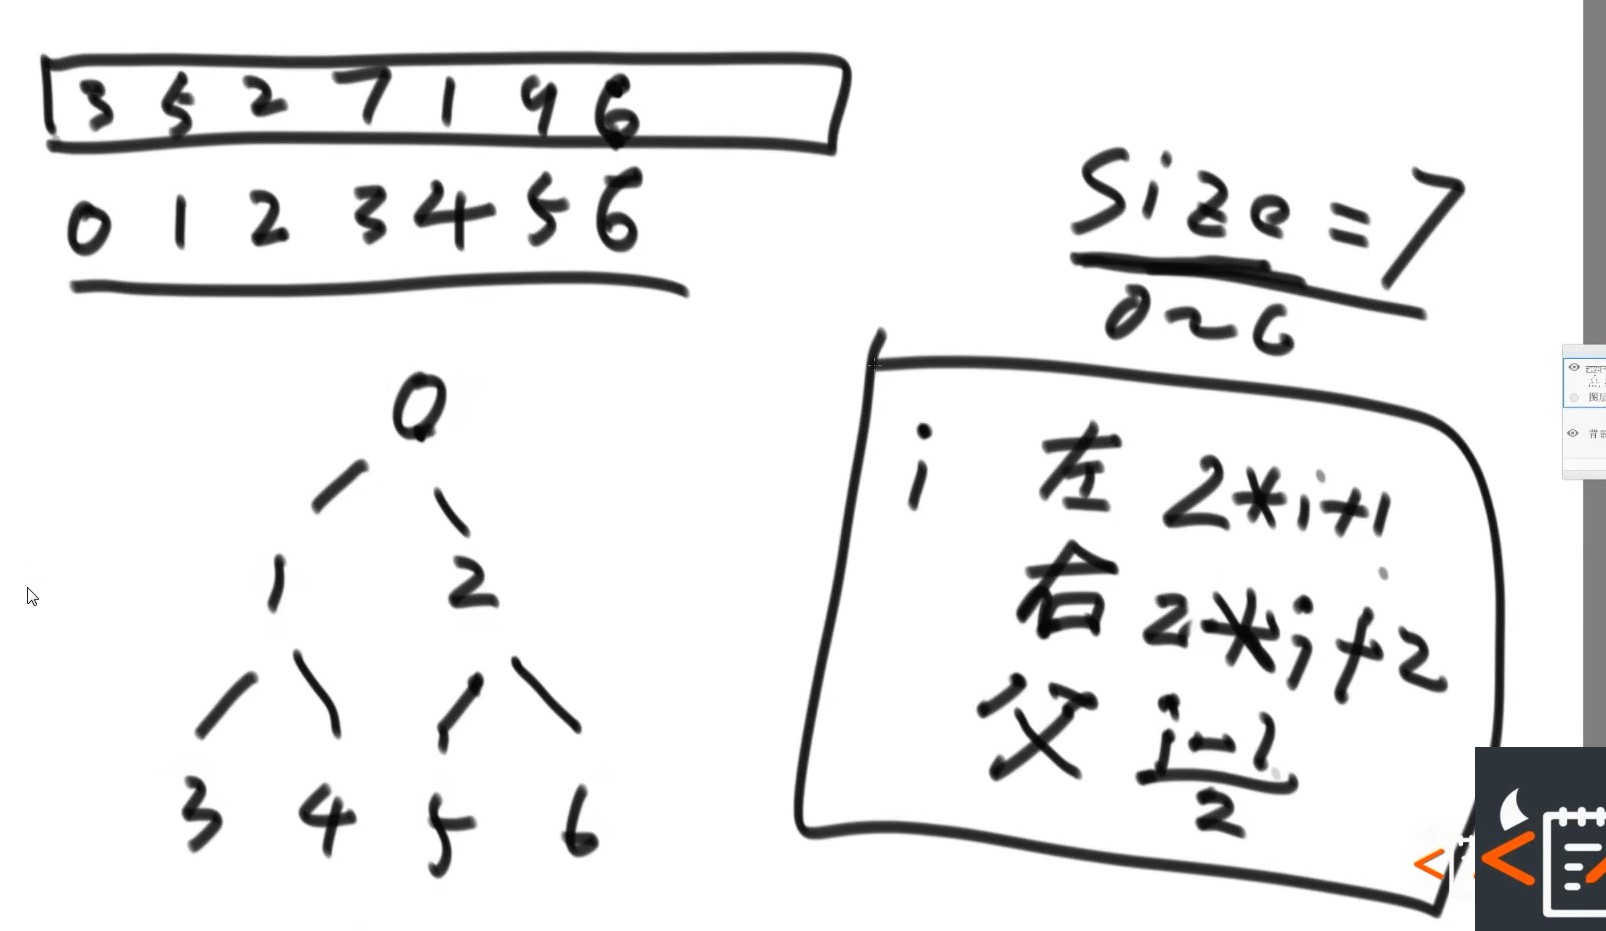 3 5 2 7 1 9 6
0 1 2 3 4 5 6
size=7
0~6
0
1 2
3 4 5 6
i 左 2*i+1
右 2*i+2
父 i-1
2
图层
背景